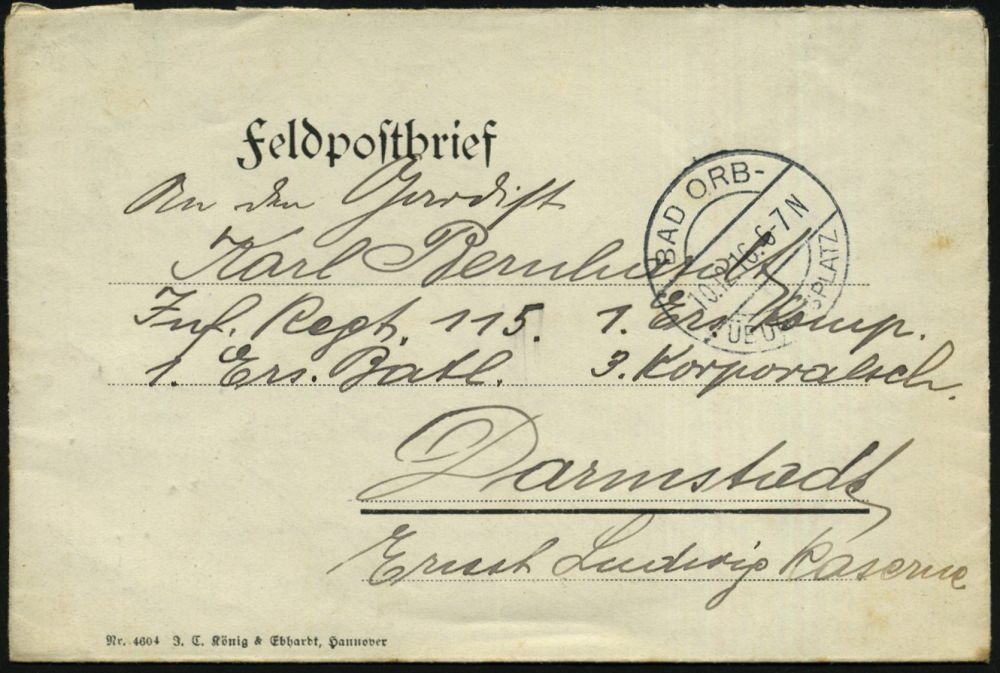 Feldpostbrief
An den Gardist
Karl Bernhardt
Inf. Regt. 115. 1. Ers. Komp.
1. Ers. Batl. 3. Korporalsch.
Darmstadt
Ernst Ludwig Kaserne
BAD ORB-
10.12.16. 6-7 N
ÜBU SPLATZ
Nr. 4604 J. C. König & Ebhardt, Hannover